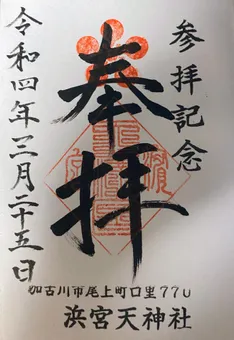 参拝記念
奉拝
令和四年三月二十五日
加古川市尾上町口里770
浜宮天神社